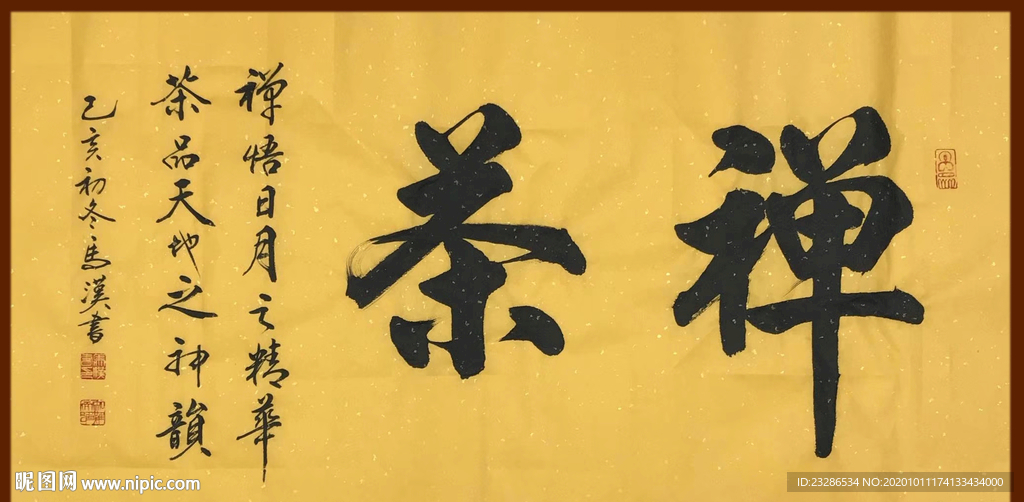 禅茶
禅悟日月之精華
茶品天地之神韻
己亥初冬馬漢書
昵图网 www.nipic.com
ID:23286534 NO:20201011174133434000